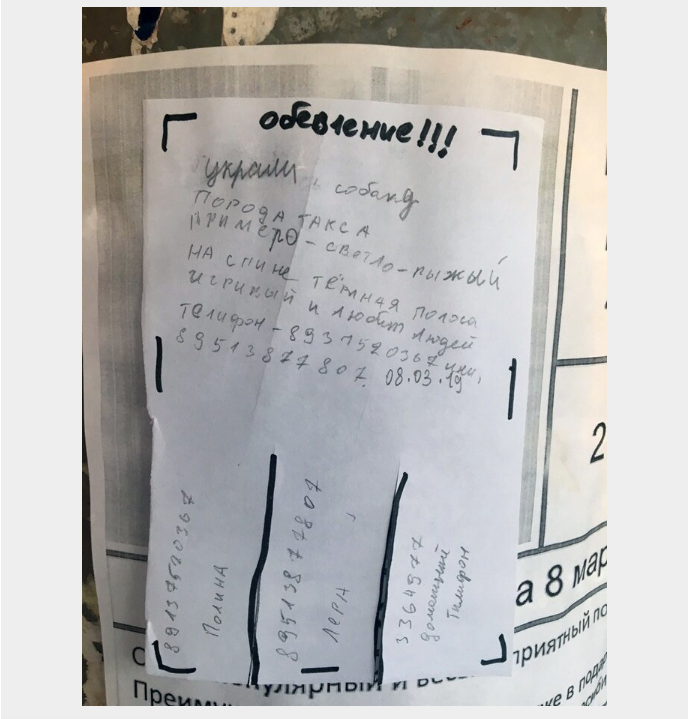 обевление!!!
украли собаку
ПОРОДА ТАКСА
ПРИМЕРО - СВЕТЛО - РЫЖЫЙ
НА СПИНЕ ТЁМНАЯ ПОЛОСА
ИГРИВЫЙ И ЛЮБИТ ЛЮДЕЙ
Телифон - 8937520367 или,
89513877807. 08.03.19
89137520367
ПОЛИНА
89513877807
ЛЕРА
3364977
домошний
Тилифон
2
а 8 мар
приятный
Преиму